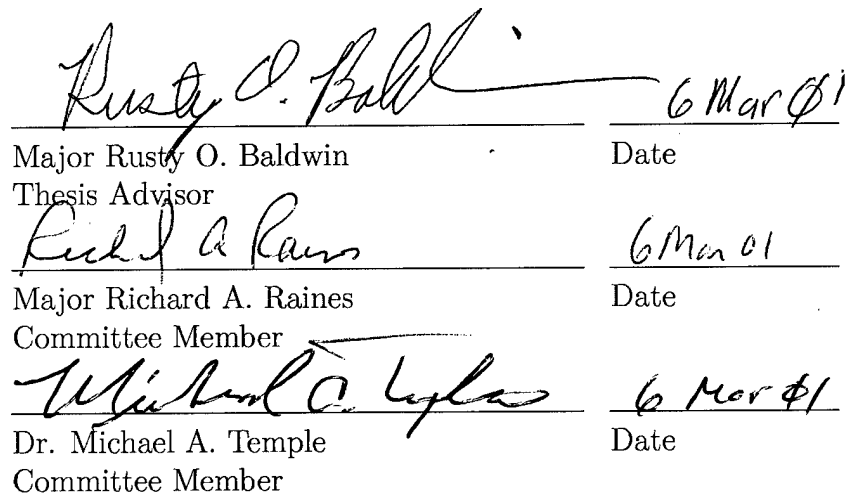 Rusty O. Baldwin 6 Mar 01
Major Rusty O. Baldwin Date
Thesis Advisor
Richard A Raines 6 Mar 01
Major Richard A. Raines Date
Committee Member
Michael A. Temple 6 Mar 01
Dr. Michael A. Temple Date
Committee Member